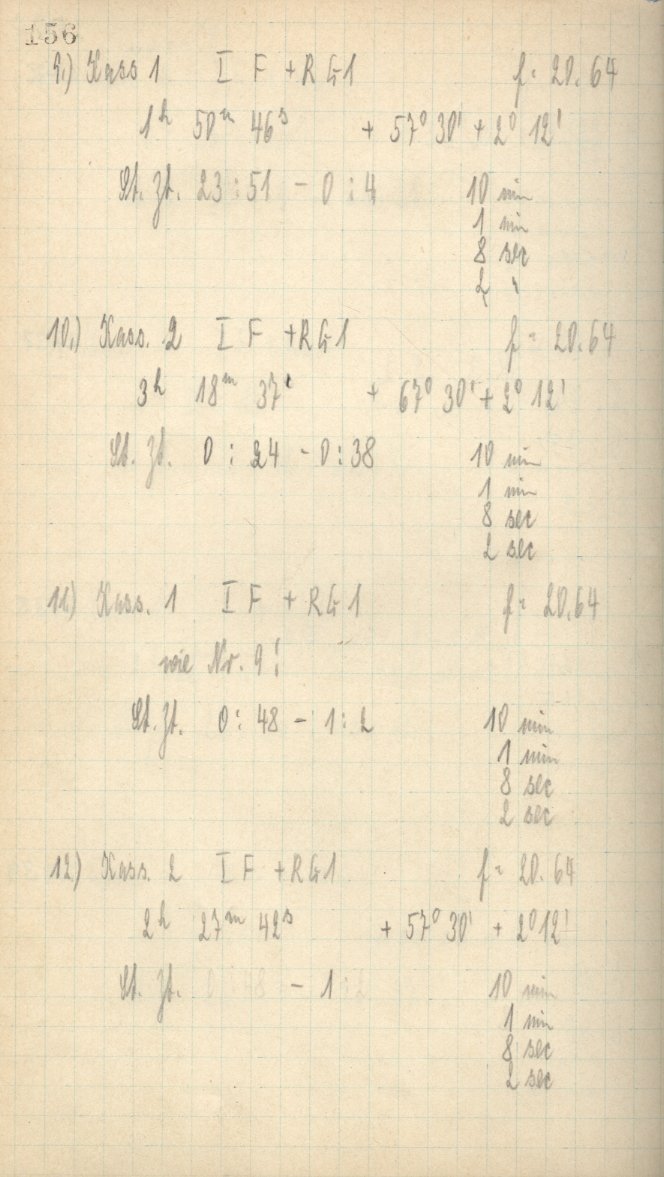 156
9.) Kass 1 I F + RG1 f = 20.64
1h 50m 46s + 57° 30' + 2° 12'
St. Zt. 23 : 51 - 0 : 4 10 min
1 min
8 sec
2 "
10.) Kass. 2 I F + RG1 f = 20.64
3h 18m 37s + 67° 30' + 2° 12'
St. Zt. 0 : 24 - 0 : 38 10 min
1 min
8 sec
2 sec
11.) Kass. 1 I F + RG1 f = 20.64
wie Nr. 9!
St. Zt. 0 : 48 - 1 : 2 10 min
1 min
8 sec
2 sec
12.) Kass. 2 I F + RG1 f = 20.64
2h 27m 42s + 57° 30' + 2° 12'
St. Zt. - 1 10 min
1 min
8 sec
2 sec